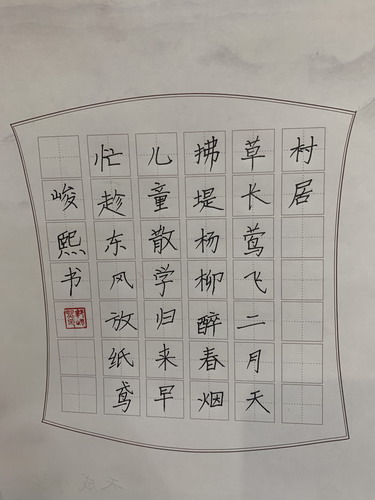 村居
草长莺飞二月天
拂堤杨柳醉春烟
儿童散学归来早
忙趁东风放纸鸢
峻熙书